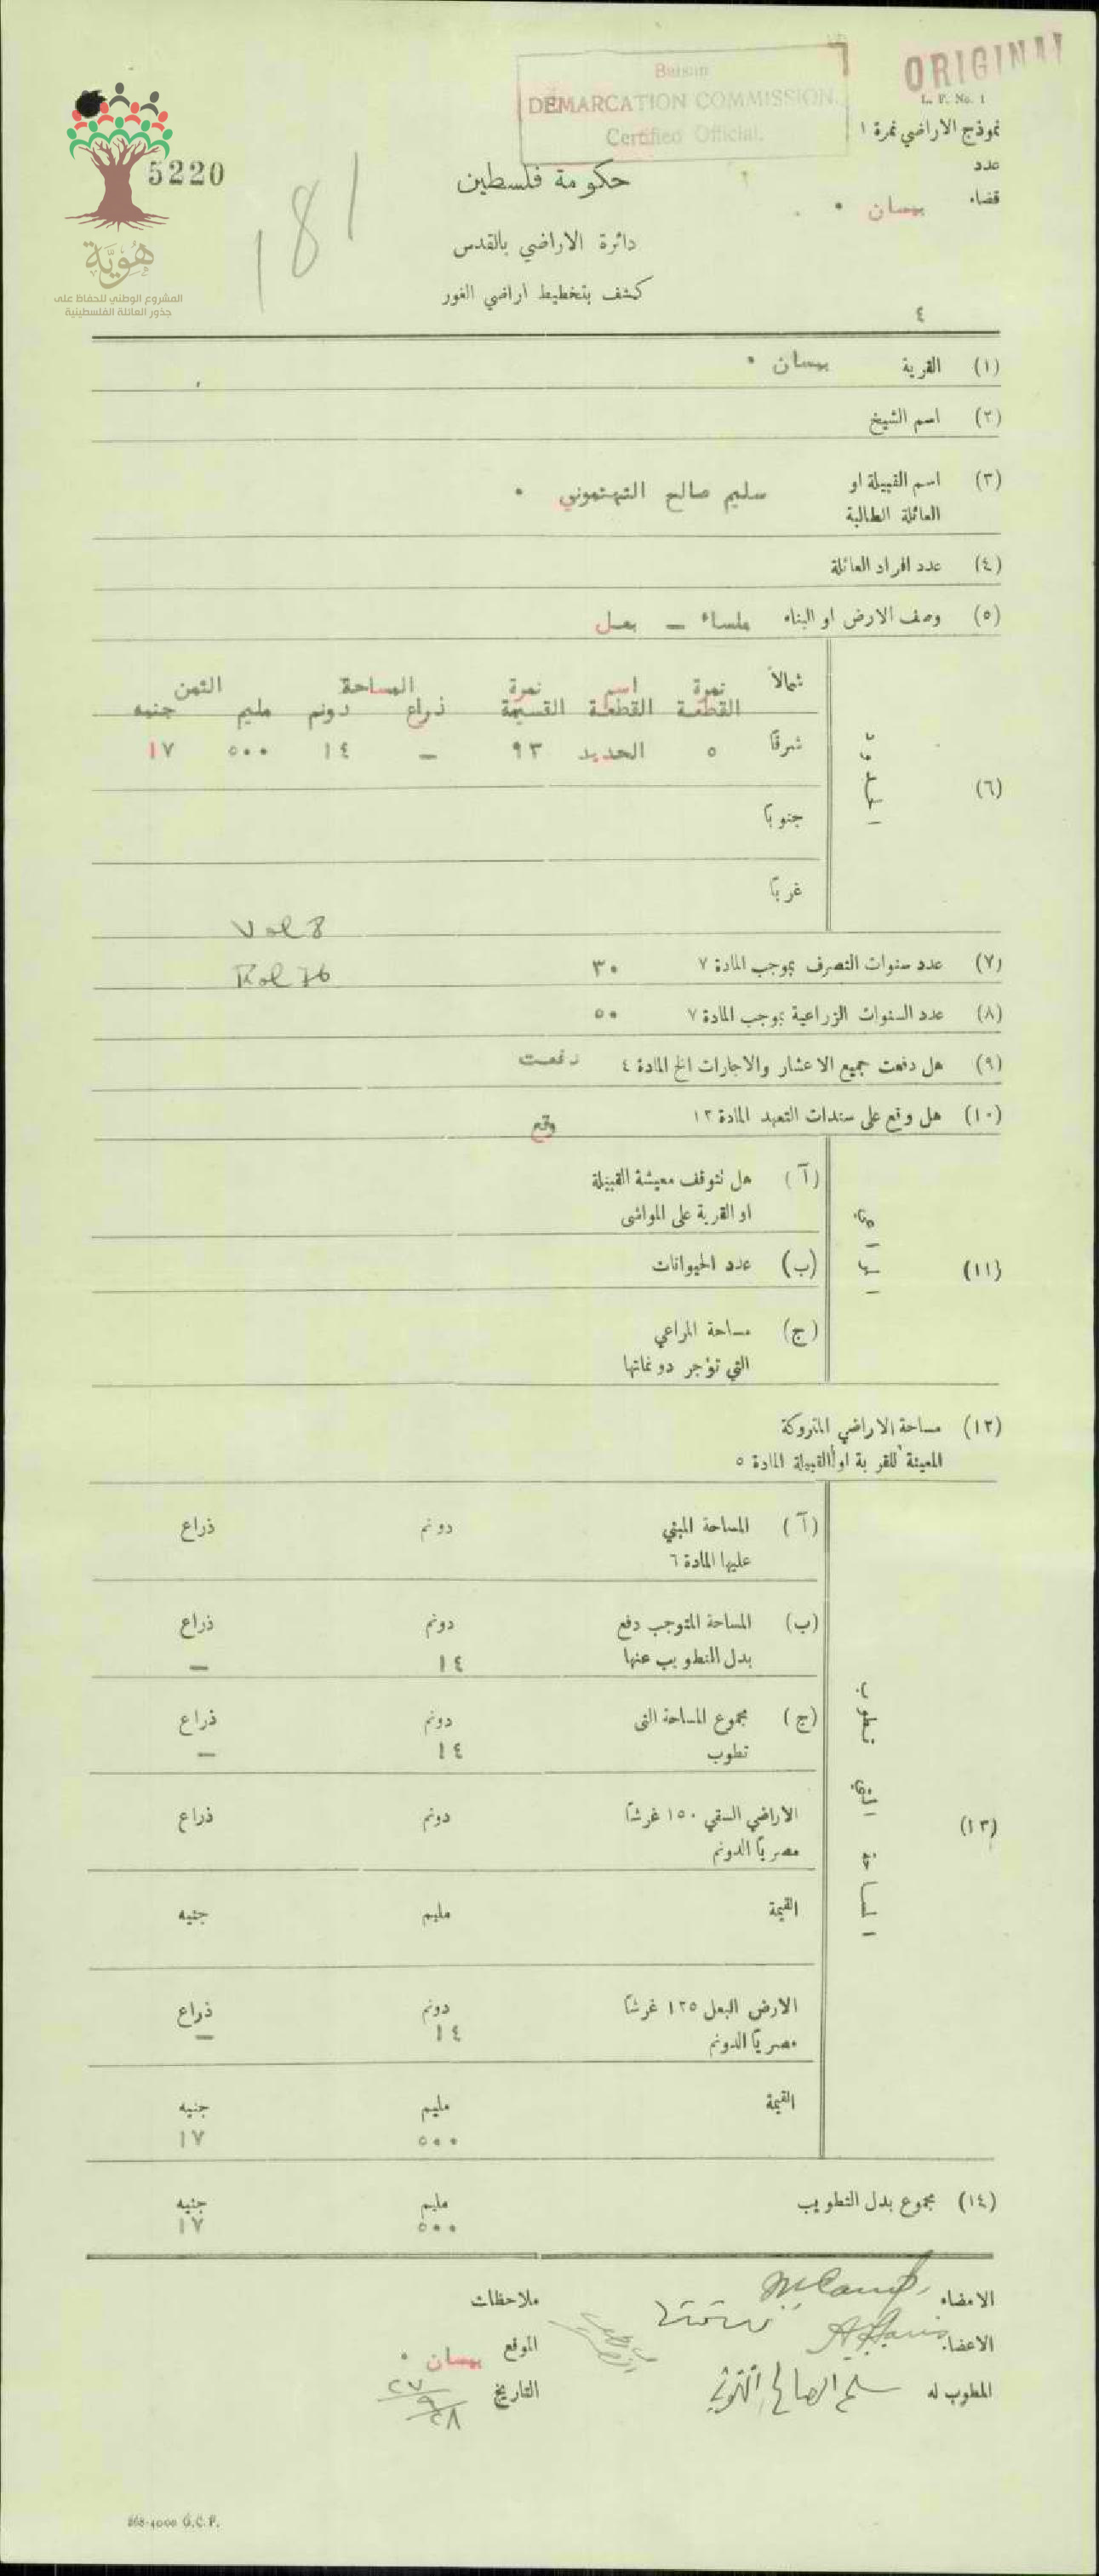 ORIGINAL
L. F. No. 1
Baisan
DEMARCATION COMMISSION.
Certified Official.
نموذج الاراضي نمرة ١
عدد
قضاء بيسان
5220
181
هُويَّة
المشروع الوطني للحفاظ على
جذور العائلة الفلسطينية
حكومة فلسطين
دائرة الاراضي بالقدس
كشف بتخطيط اراضي الغور
٤
(١) القرية بيسان
(٢) اسم الشيخ
(٣) اسم القبيلة او
العائلة الطالبة سليم صالح التهتموني
(٤) عدد افراد العائلة
(٥) وصف الارض او البناء ملساء — بعل
(٦) الحدود
شمالاً
نمرة القطعة اسم القطعة نمرة القسيمة المساحة ذراع دونم الثمن مليم جنيه
شرقاً ٥ الحديد ٩٣ — ١٤ ٥٠٠ ١٧
جنوباً
غرباً
Vol 8
Fol 76
(٧) عدد سنوات التصرف بموجب المادة ٧ ٣٠
(٨) عدد السنوات الزراعية بموجب المادة ٧ ٥٠
(٩) هل دفعت جميع الاعشار والاجارات الخ المادة ٤ دفعت
(١٠) هل وقع على سندات التعهد المادة ١٣ وقع
(١١) المراعي
(آ) هل تتوقف معيشة القبيلة
او القرية على المواشى
(ب) عدد الحيوانات
(ج) مساحة المراعي
التي تؤجر دونماتها
(١٢) مساحة الاراضي المتروكة
المعينة للقرية او القبيلة المادة ٥
(١٣) المساحة التي تطوب
(آ) المساحة المبني دونم ذراع
عليها المادة ٦
(ب) المساحة المتوجب دفع دونم ذراع
بدل التطويب عنها ١٤ —
(ج) مجموع المساحة التى دونم ذراع
تطوب ١٤ —
الاراضي السقي ١٥٠ غرشاً دونم ذراع
مصرياً الدونم
القيمة مليم جنيه
الارض البعل ١٢٥ غرشاً دونم ذراع
مصرياً الدونم ١٤ —
القيمة مليم جنيه
٥٠٠ ١٧
(١٤) مجموع بدل التطويب مليم جنيه
٥٠٠ ١٧
الامضاء
ملاحظات
الاعضاء
الموقع بيسان
المطوب له سليم الصالح التهتموني
التاريخ ٢٧/٩/٢٨
868-4000 G.C.P.